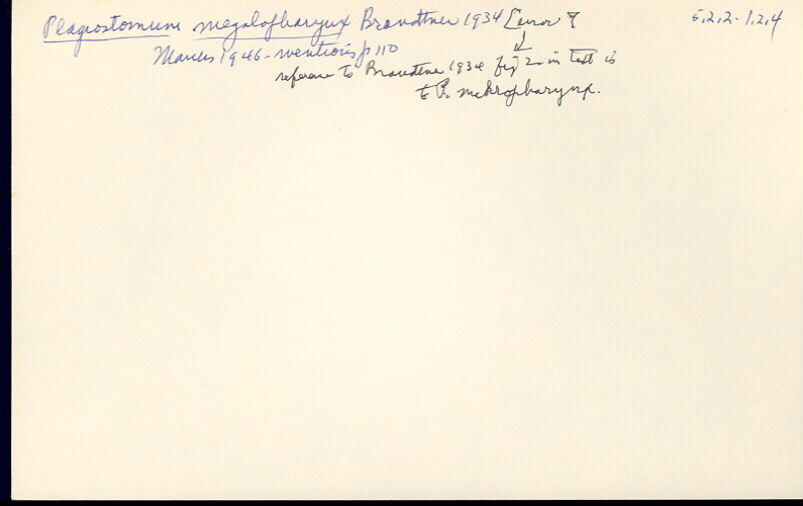 Plagiostomum megalopharynx Brandtner 1934 [error ? 5.2.2-1.2.4
Marcus 1946 - mentions p 110
reference to Brandtner 1934 fig 2 in text is
to P. makropharynx.